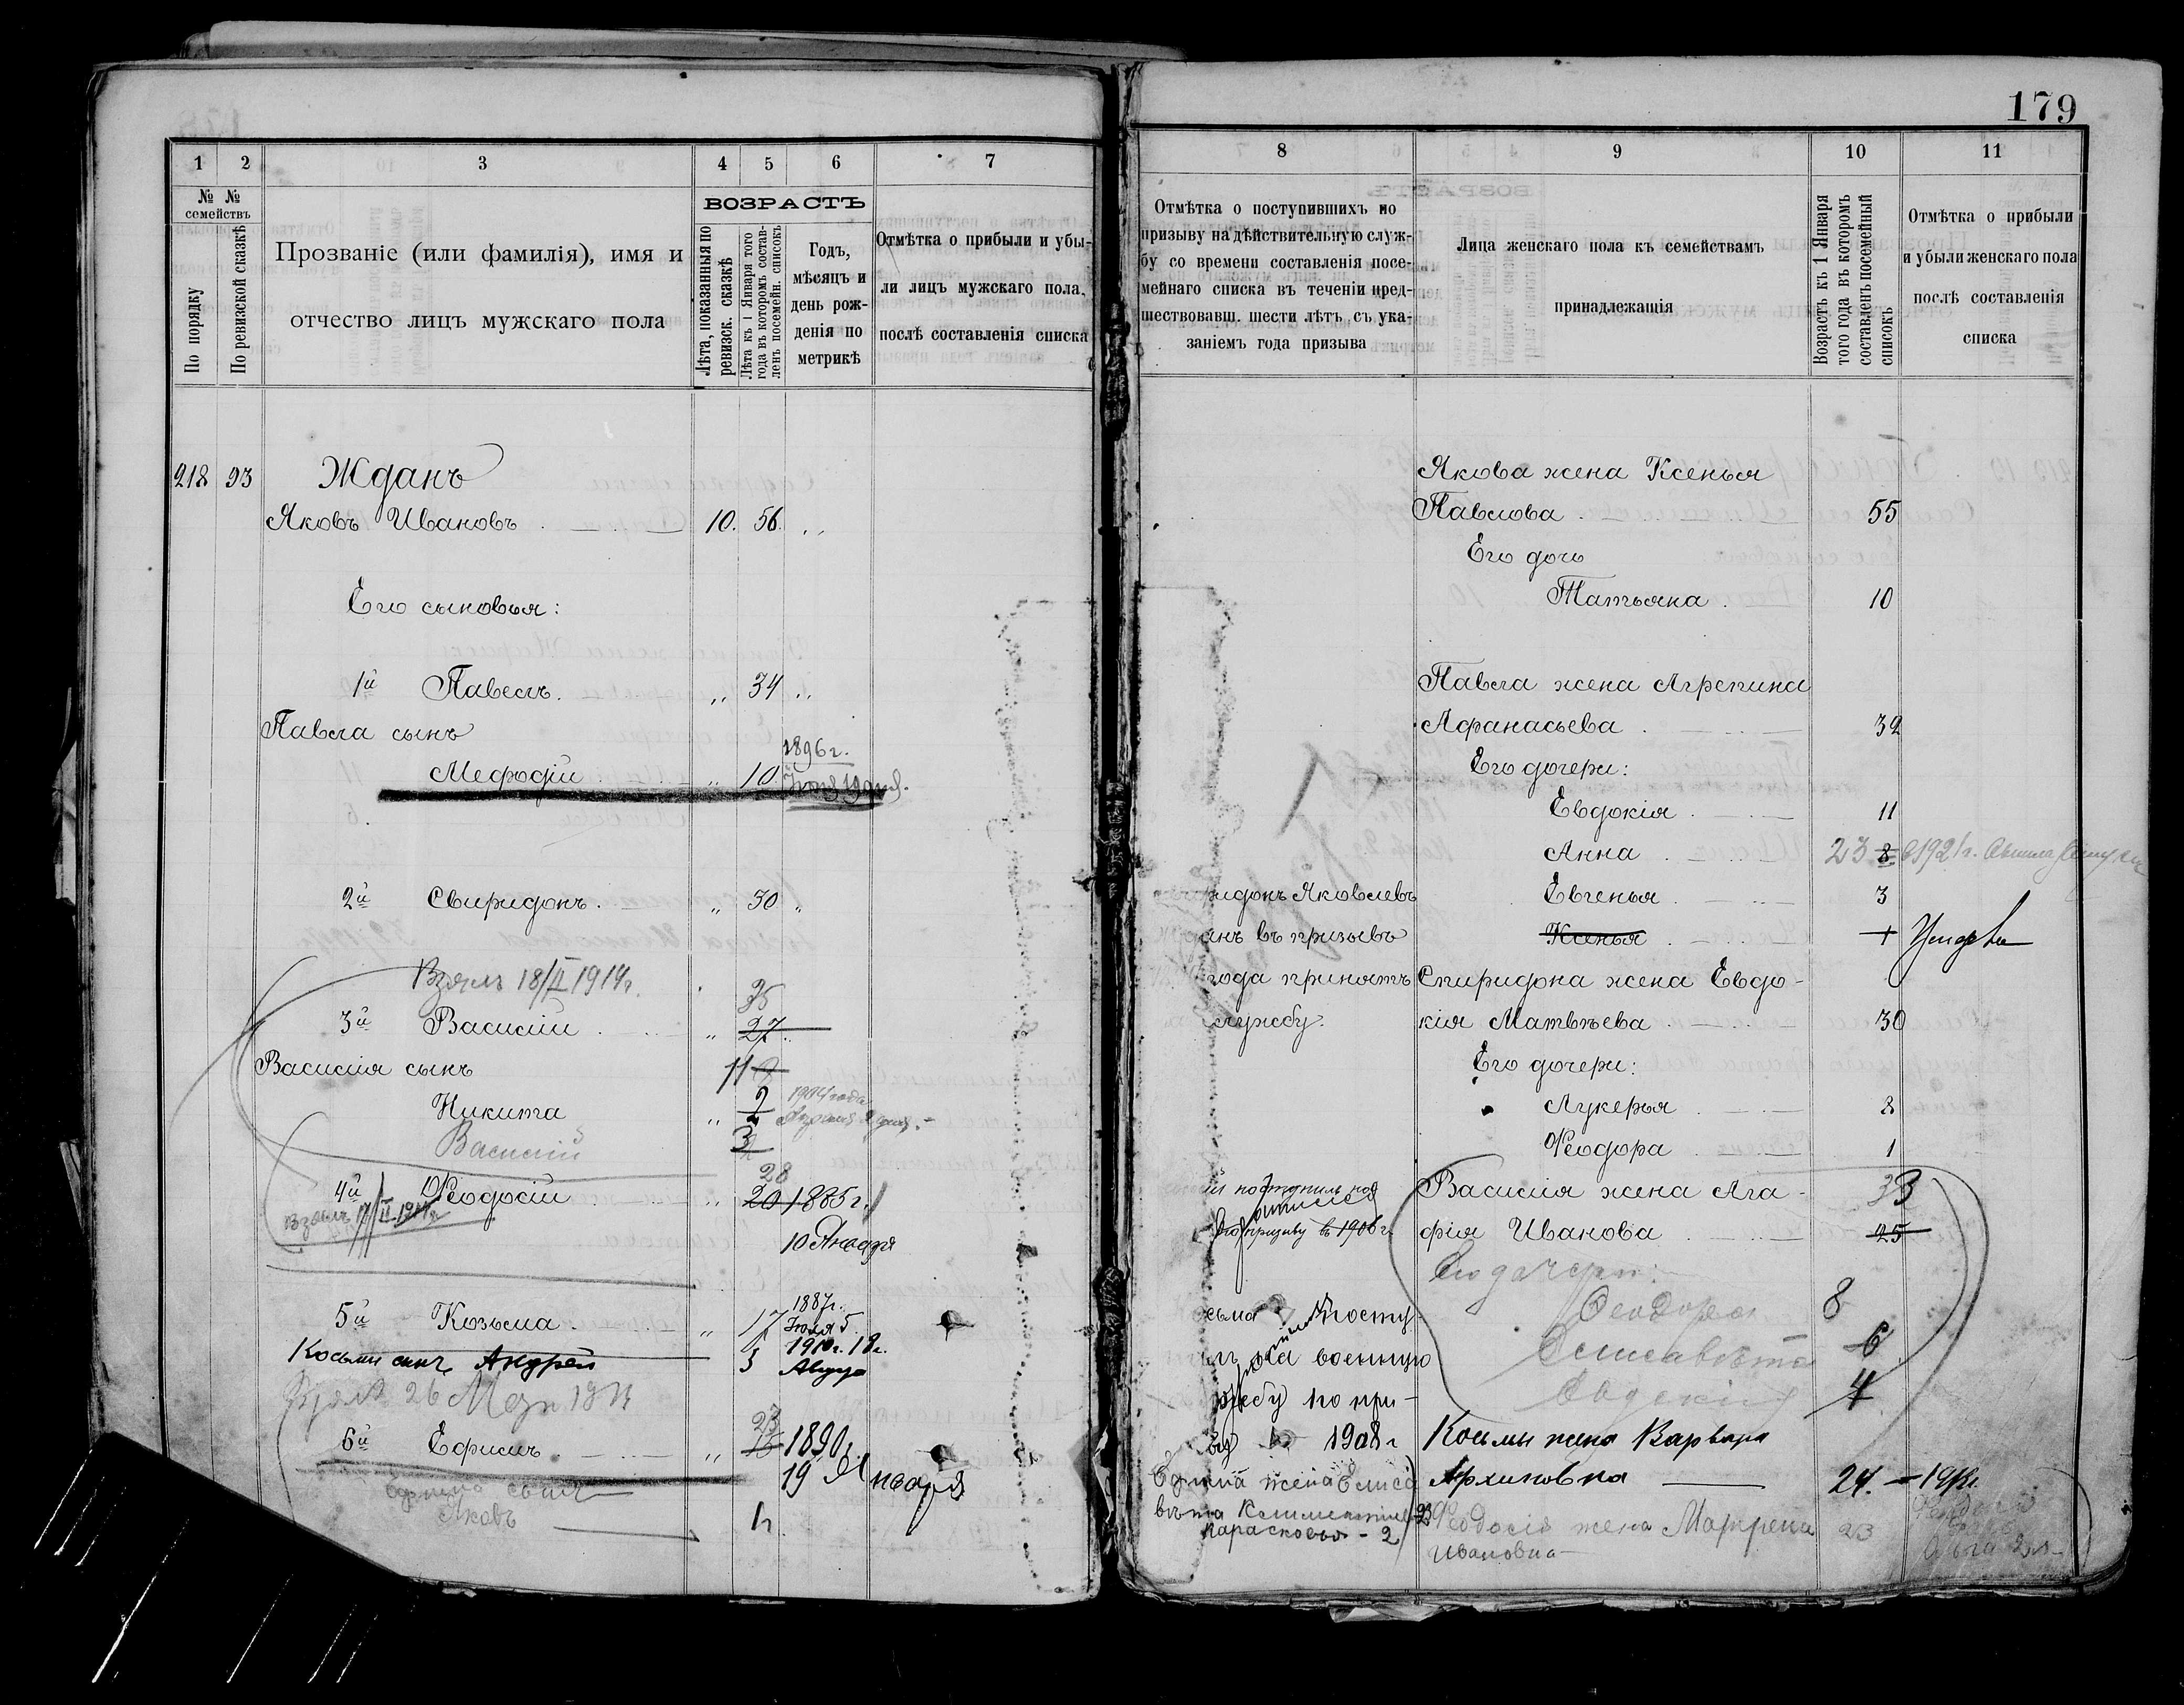 179
1 2 3 4 5 6 7
№ № семействъ
По порядку
По ревизской сказкѣ
Прозваніе (или фамилія), имя и
отчество лицъ мужскаго пола
ВОЗРАСТЪ
Лѣта, показанныя по
ревизск. сказкѣ
Лѣта къ 1 Января того
года въ которомъ состав-
ленъ посемейн. списокъ
Годъ,
мѣсяцъ и
день рож-
денія по
метрикѣ
Отмѣтка о прибыли и убы-
ли лицъ мужскаго пола,
послѣ составленія списка
218 93 Жданъ
Яковъ Ивановъ 10. 56. „
Его сыновья:
1й Павелъ. „ 34 „
Павла сынъ
1896г.
Мефодій „ 10
2й Свиридонъ. „ 30 „
Взялъ 18/II 1914г.
35
3й Василій „ 27
Василія сынъ 11
1904 года
Никита „ 2
Василій
28
4й Ѳеодосій „ 20 1885г.
Взялъ 17/II 1914г
10 Января
1887г.
5й Козьма „ 17 Іюля 5
1910г. 18
Косьмы сынъ Андрей 3
Взялъ 26
23
6й Ефимъ „ 1890г.
19 Января
Ефима сынъ
Яковъ
8 9 10 11
Отмѣтка о поступившихъ по
призыву на дѣйствительную служ-
бу со времени составленія посе-
мейнаго списка въ теченіи пред-
шествовавш. шести лѣтъ съ ука-
заніемъ года призыва
Лица женскаго пола къ семействамъ
принадлежащія
Возрастъ къ 1 Января
того года въ которомъ
составленъ посемейный
списокъ
Отмѣтка о прибыли
и убыли женскаго пола
послѣ составленія
списка
Якова жена Ксенья
Павлова 55
Его дочь
Татьяна 10
Павла жена Агрепина
Афанасьева 32
Его дочери:
Евдокія 11
Анна 23 8 1921г.
ридонъ Яковлевъ Евгенья 3
анъ въ призывъ Ксенья 1 Умерла
года принятъ Спиридона жена Евдо-
службу. кія Матвѣева 30
Его дочери:
Лукерья 8
Ѳеодора 1
поступилъ Василія жена Ага- 33
призыву въ 1906г. фія Иванова 25
Его дочери:
Ѳеодора 8
сьма посту-
Елисавета 6
на военную
Евдокія 4
службу по при-
1908г Косьмы жена Варвара
Ефима жена Елиса Архиповна 24. - 19
вѣта Климентьев
Ѳеодосія жена Маврена 23
Парасковья - 2
Ивановна